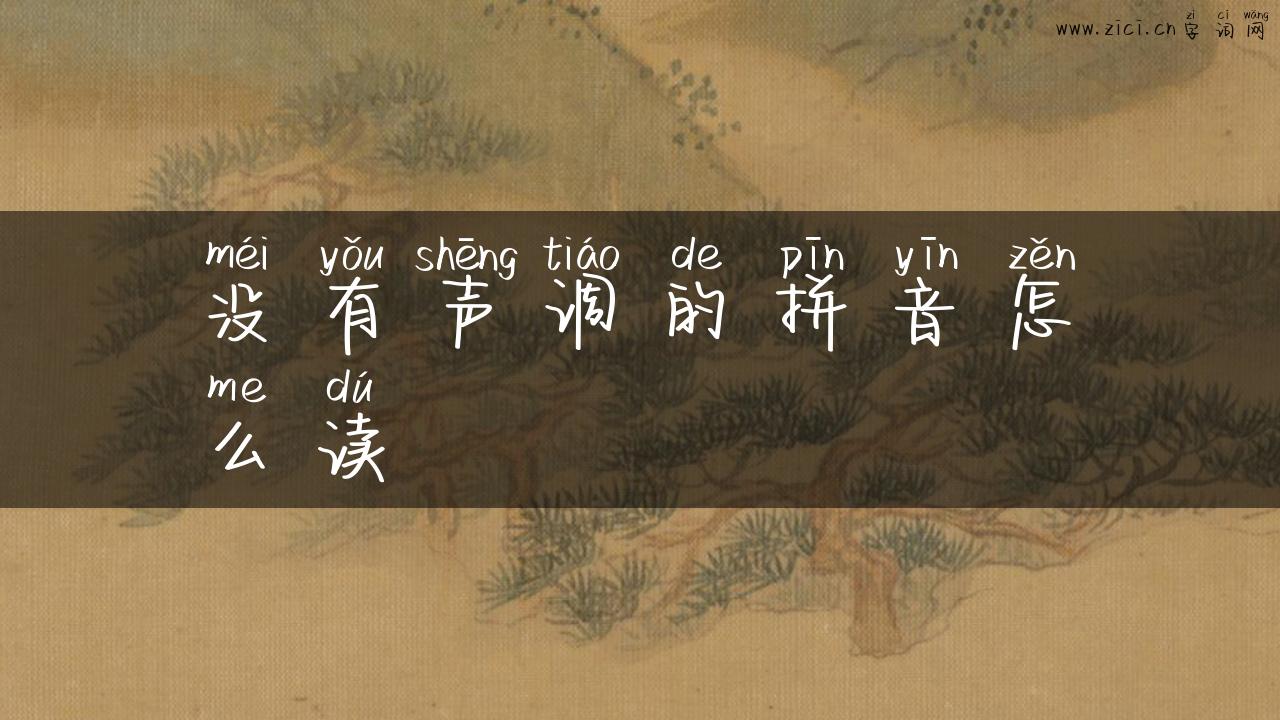 zì cí wǎng
www.zici.cn 字词网
méi yǒu shēng tiáo de pīn yīn zěn
没有声调的拼音怎
me dú
么读